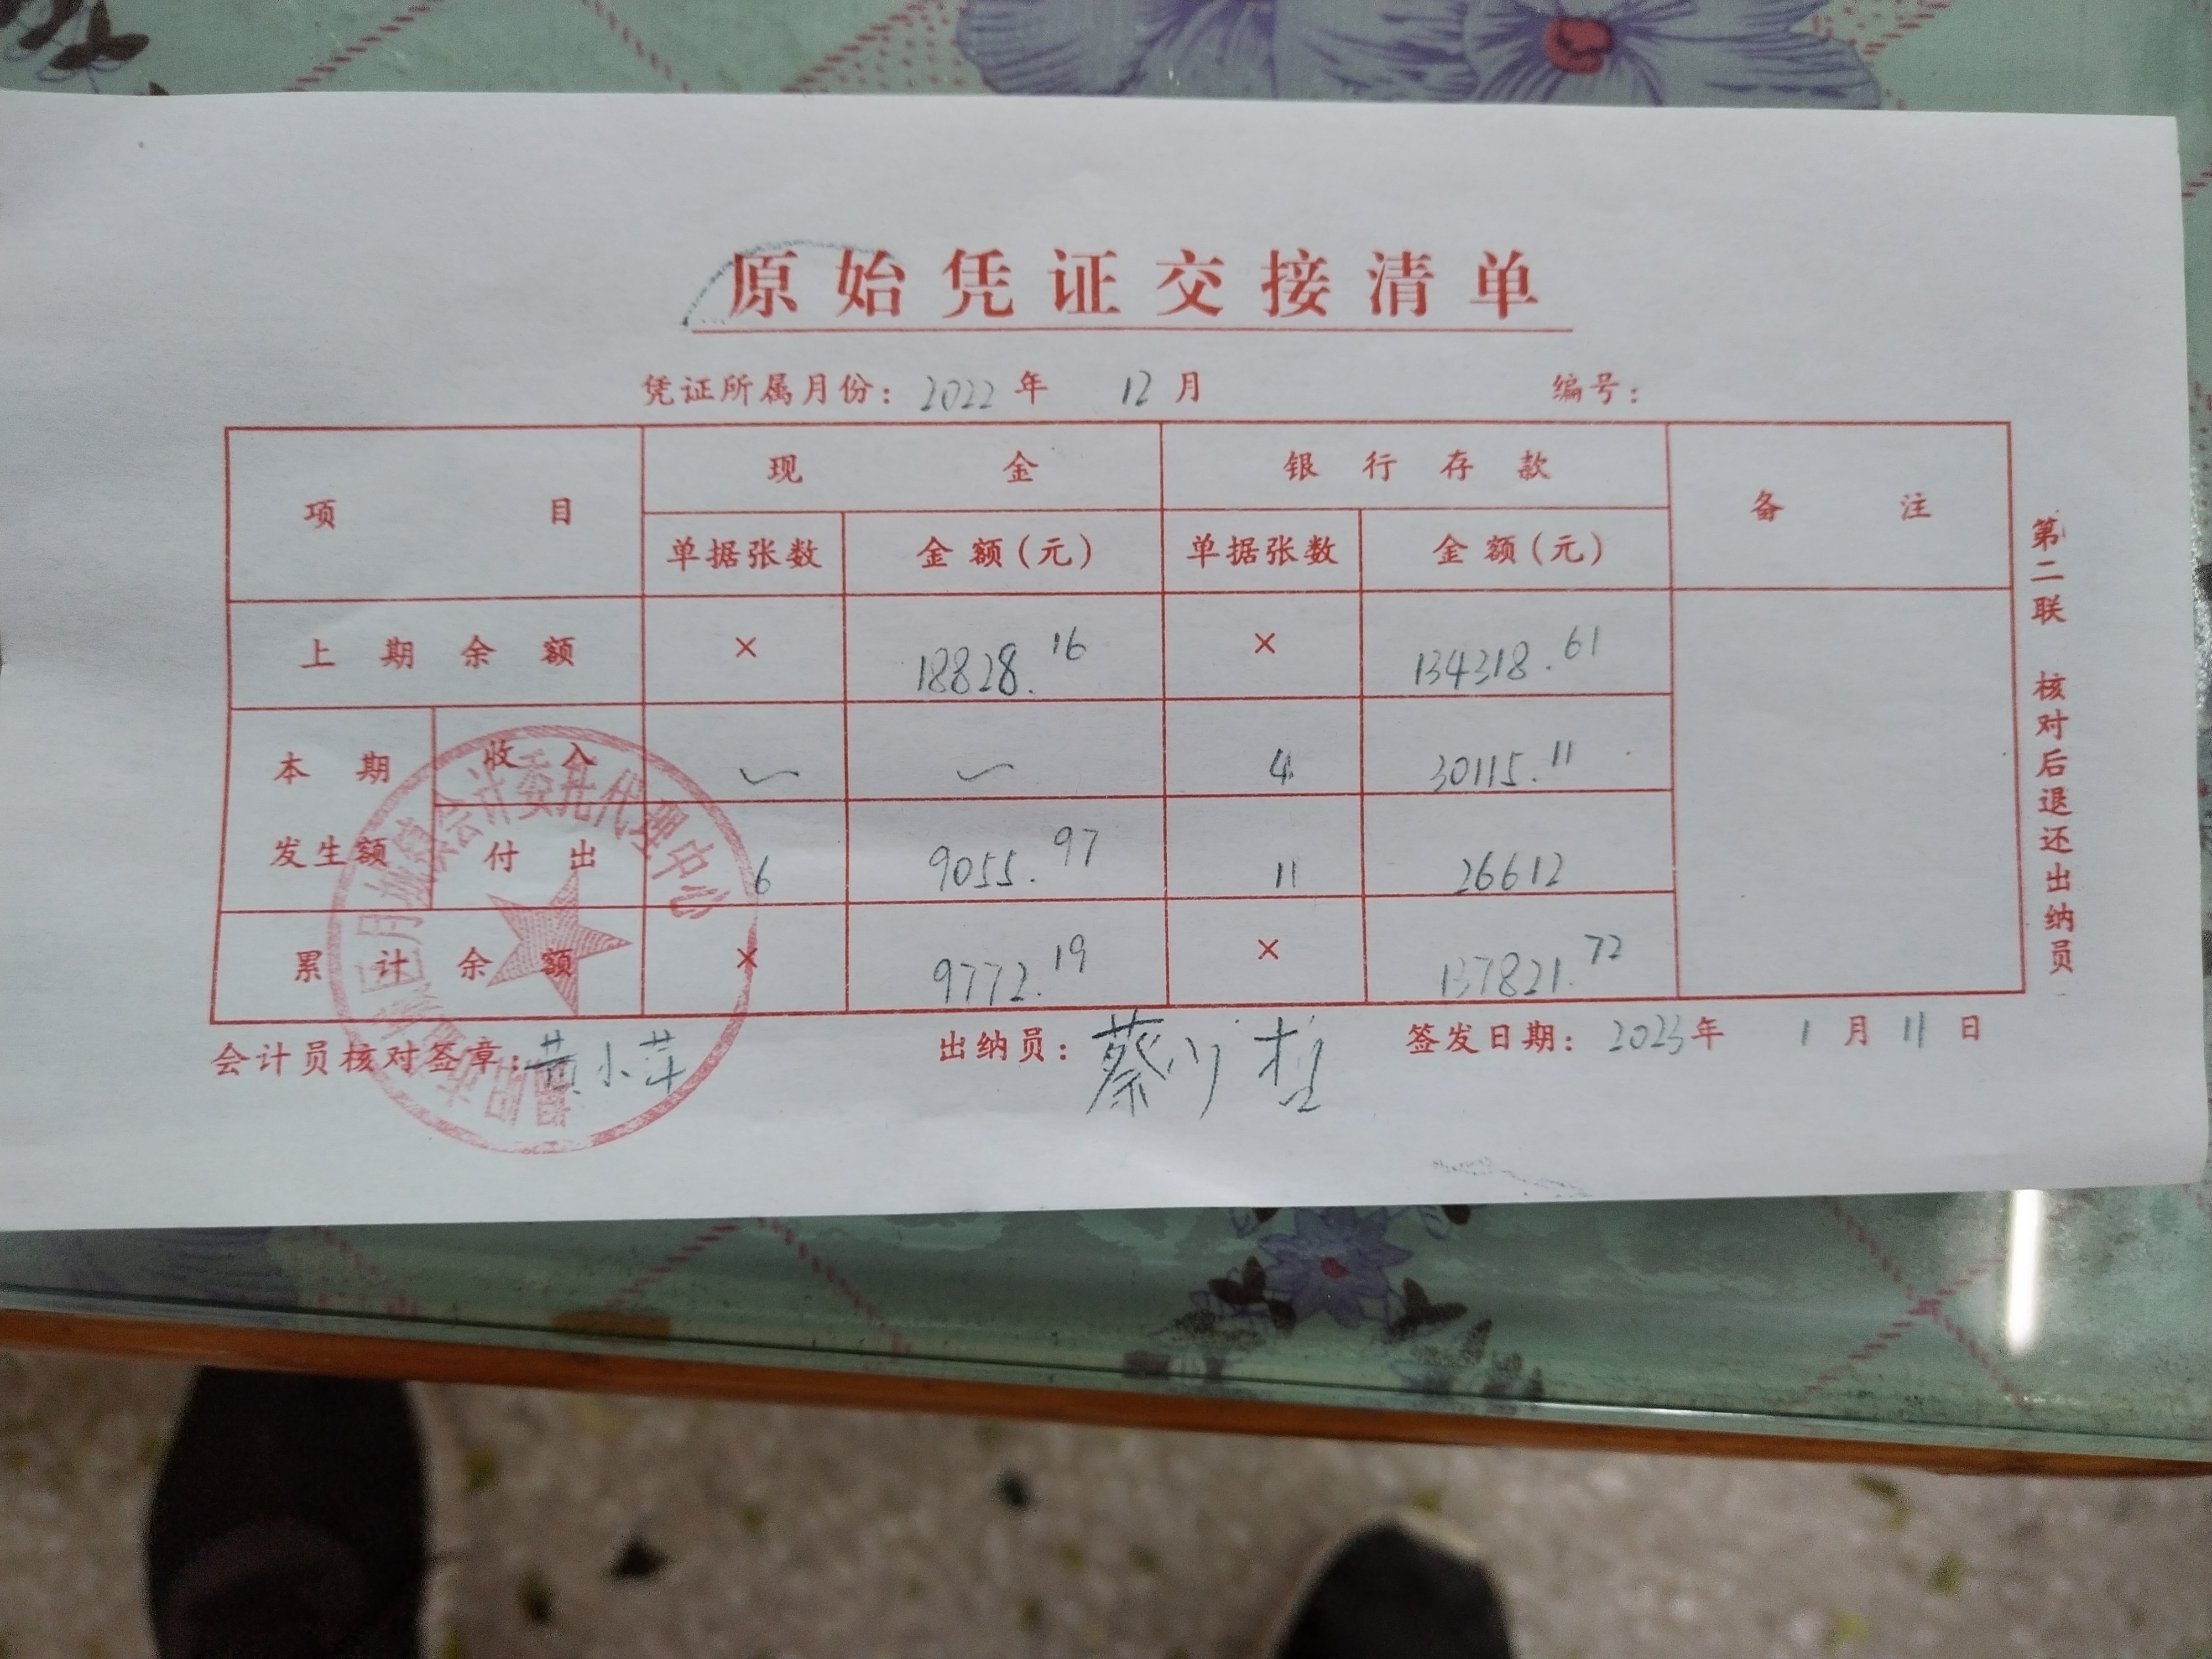 原始凭证交接清单
凭证所属月份：2022年 12月 编号：
项目 现金 银行存款 备注
单据张数 金额(元) 单据张数 金额(元)
上期余额 × 18828.16 × 134318.61
本期发生额 收入 4 30115.11
付出 6 9055.97 11 26612
累计余额 × 9772.19 × 137821.72
会计员核对签章：黄小苹 出纳员：蔡 签发日期：2023年 1月 11日
第二联 核对后退还出纳员
会计委托代理中心